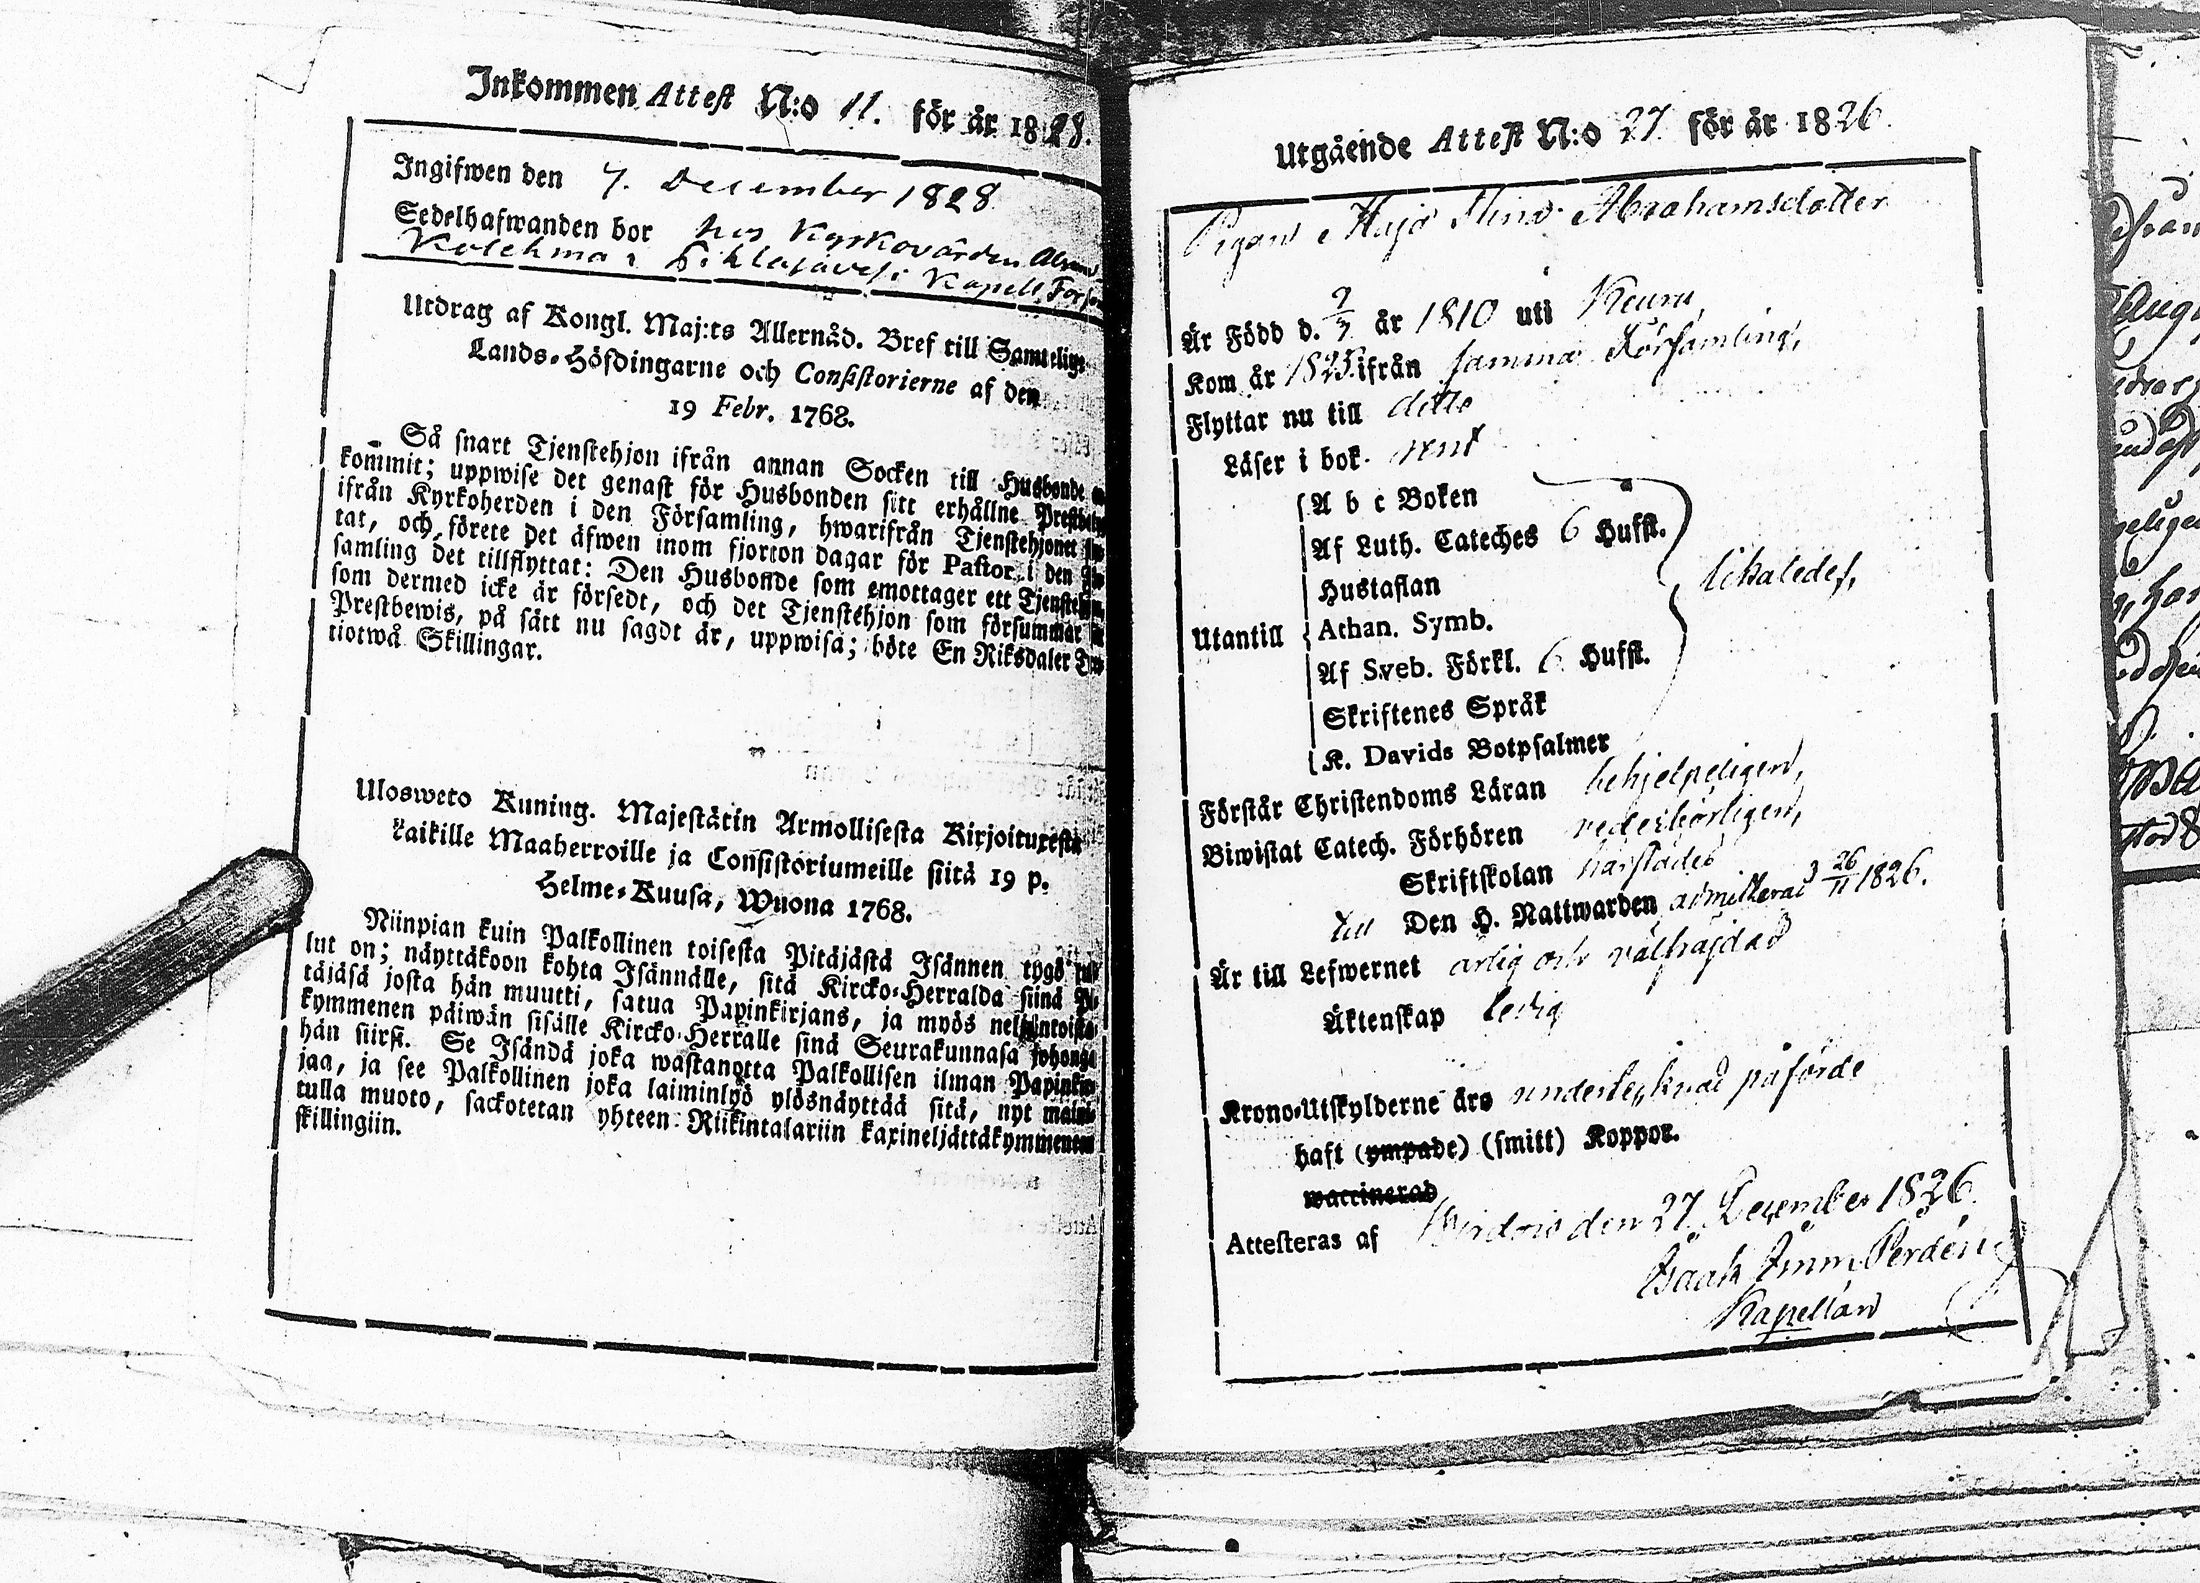 Inkommen Attest N:o 11. för år 1828.
Ingifwen den 7. December 1828
Sedelhafwanden bor hos Kyrkovärden
Kolehma i Pihlajavesi Kapell
Utdrag af Kongl. Maj:ts Allernåd. Bref till Samtelige
Lands-Höfdingarne och Consistorierne af den
19 Febr. 1768.
Så snart Tjenstehjon ifrån annan Socken till Husbonde
kommit; uppwise det genast för Husbonden sitt erhållne
ifrån Kyrkoherden i den Församling, hwarifrån Tjenstehjonet
tat, och förete det äfwen inom fjorton dagar för Pastor i den
samling det tillflyttat: Den Husbonde som emottager ett
som dermed icke är försedt, och det Tjenstehjon som försummar
Prestbewis, på sätt nu sagdt är, uppwisa; böte En Riksdaler
tiotwå Skillingar.
Ulosweto Kuning. Majestätin Armollisesta Kirjoituxesta
kaikille Maaherroille ja Consistoriumeille siitä 19 p.
Helme-Kuusa, Wuona 1768.
Niinpian kuin Palkollinen toisesta Pitäjästä Isännen tygö
lut on; näyttäkoon kohta Isännälle, sitä Kircko-Herralda siinä
täjäsä josta hän muutti, satua Papinkirjans, ja myös neljäntoista
kymmenen päiwän sisälle Kircko-Herralle sinä Seurakunnasa johonga
hän siirsi. Se Isändä joka wastanotta Palkollisen ilman
jaa, ja see Palkollinen joka laiminlyö ylösnäyttää sitä, nyt
tulla muoto, sackotetan yhteen Riikintalariin kaxineljättäkymmenen
skillingiin.
Utgående Attest N:o 27. för år 1826.
Pigan Maja Stina Abrahamsdotter
Är Född d. 9/7 år 1810 uti Keuru
Kom år 1825. ifrån samma Församling,
Flyttar nu till ditto
Läser i bok rent
A b c Boken
Af Luth. Cateches 6 Hufst.
Hustaflan likaledes,
Utantill Athan. Symb.
Af Sveb. Förkl. 6 Hufst.
Skriftenes Språk
K. Davids Botpsalmer
Förstår Christendoms Läran behjelpeligen,
Biwistat Catech. Förhören vederbörligen,
Skriftskolan härstädes
till Den H. Nattwarden admitterad d 26/11 1826.
Är till Lefwernet ärlig och välfräjdad
Äktenskap ledig
Krono-Utskylderne äro undertecknad påförde
haft (ympade) (smitt) Koppor.
waccinerad
Attesteras af Wirdois den 27 December 1826.
Isaak Imm. Perdén
Kapellan